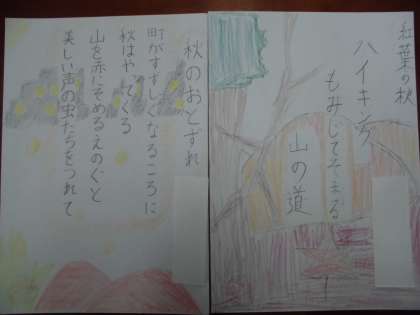 紅葉の秋
ハイキング
もみじでそまる
山の道
秋のおとずれ
町がすずしくなるころに
秋はやってくる
山を赤にそめるえのぐと
美しい声の虫たちをつれて